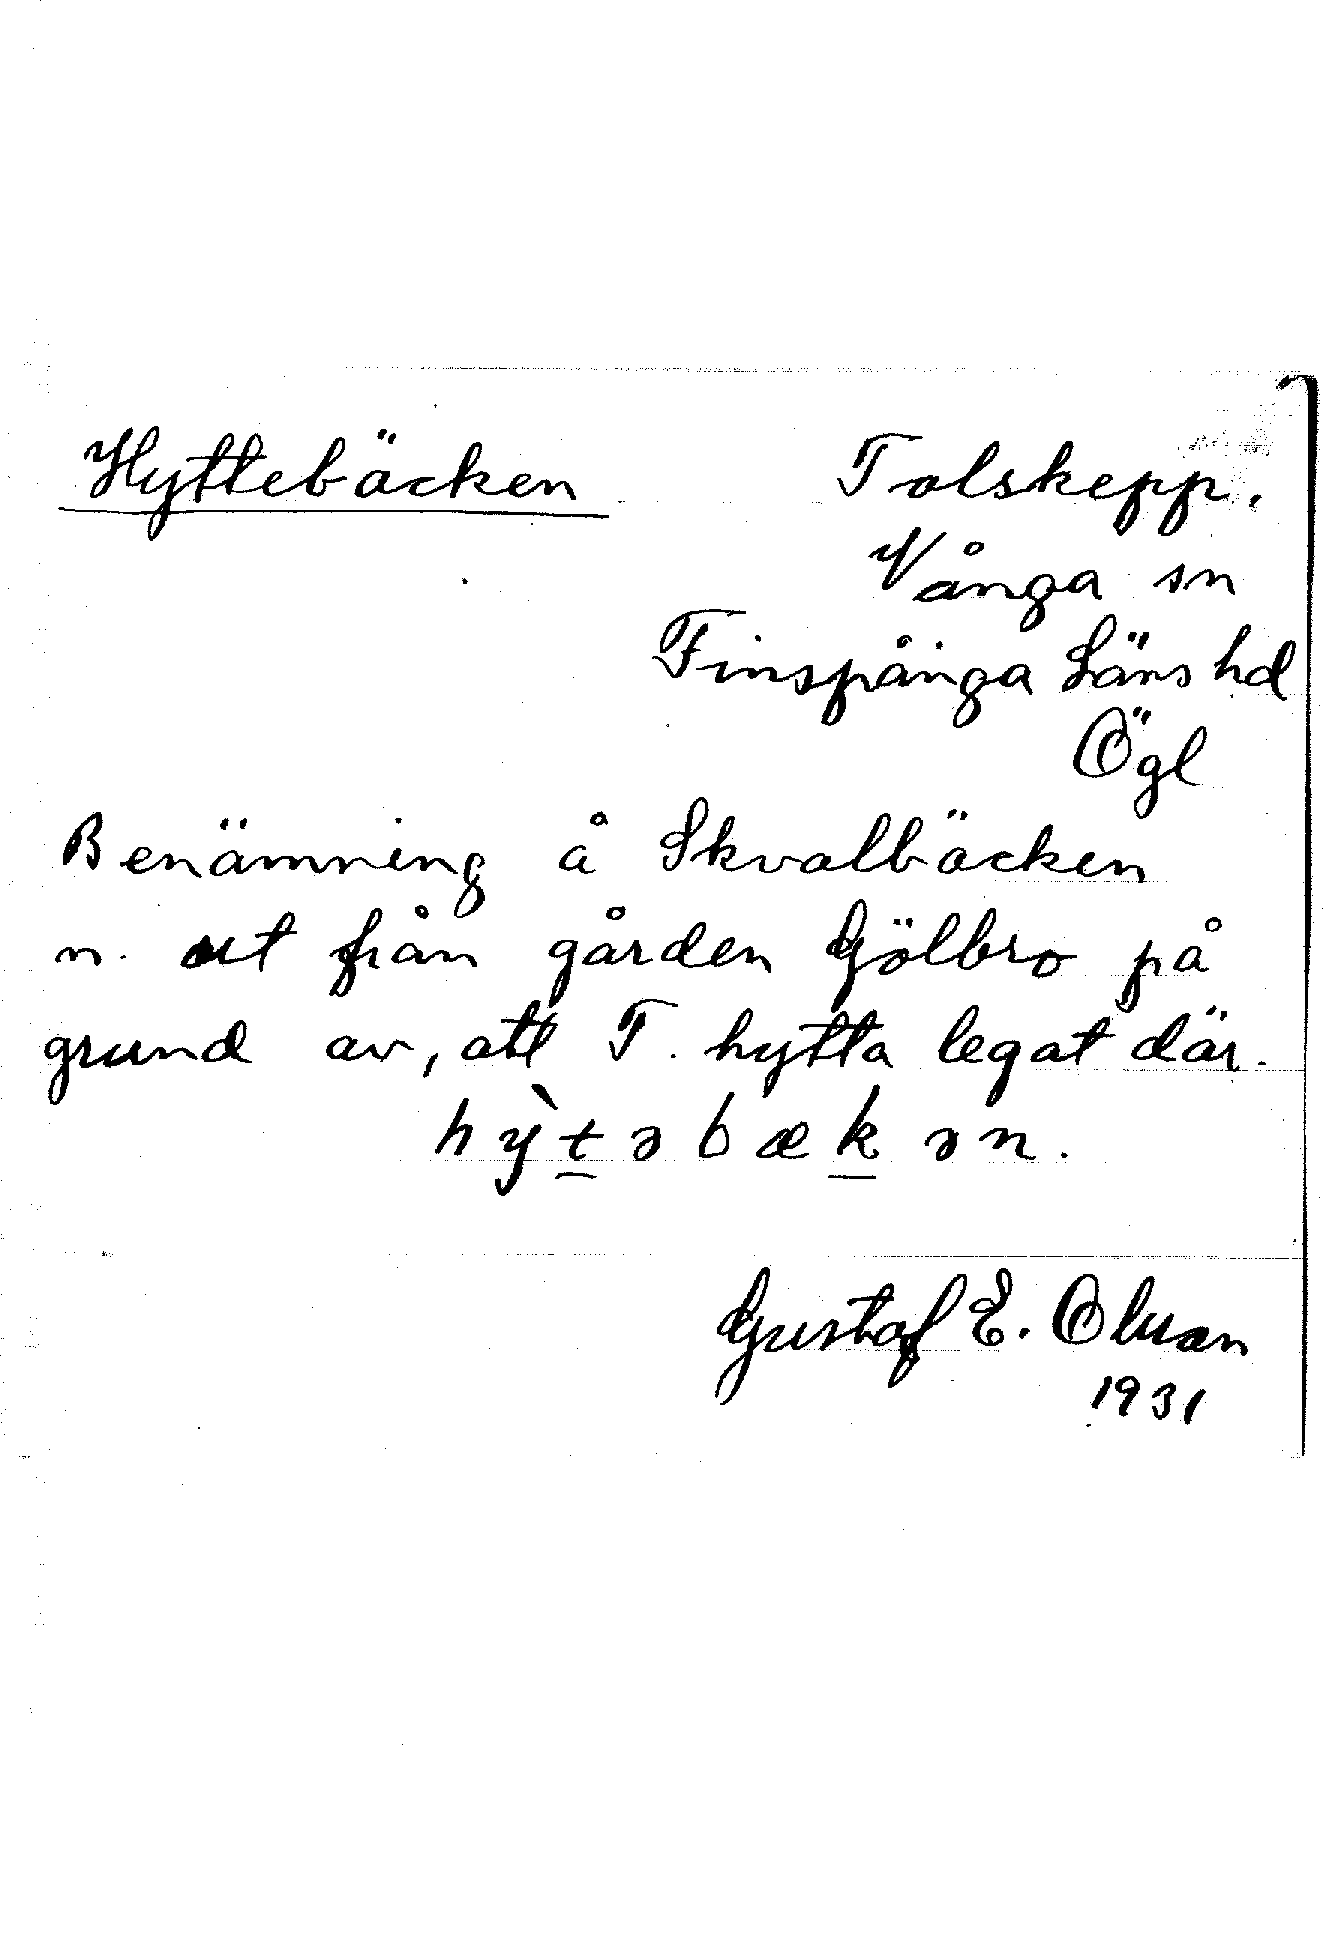 Hyttebäcken
Tolskepp.
Vånga sn
Finspånga Läns hd
Ögl
Benämning å Skvalbäcken
n. ut från gården Gölbro på
grund av, att T. hytta legat där.
hỳt̲əbæk̲ən.
Gustaf E. Olsson
1931